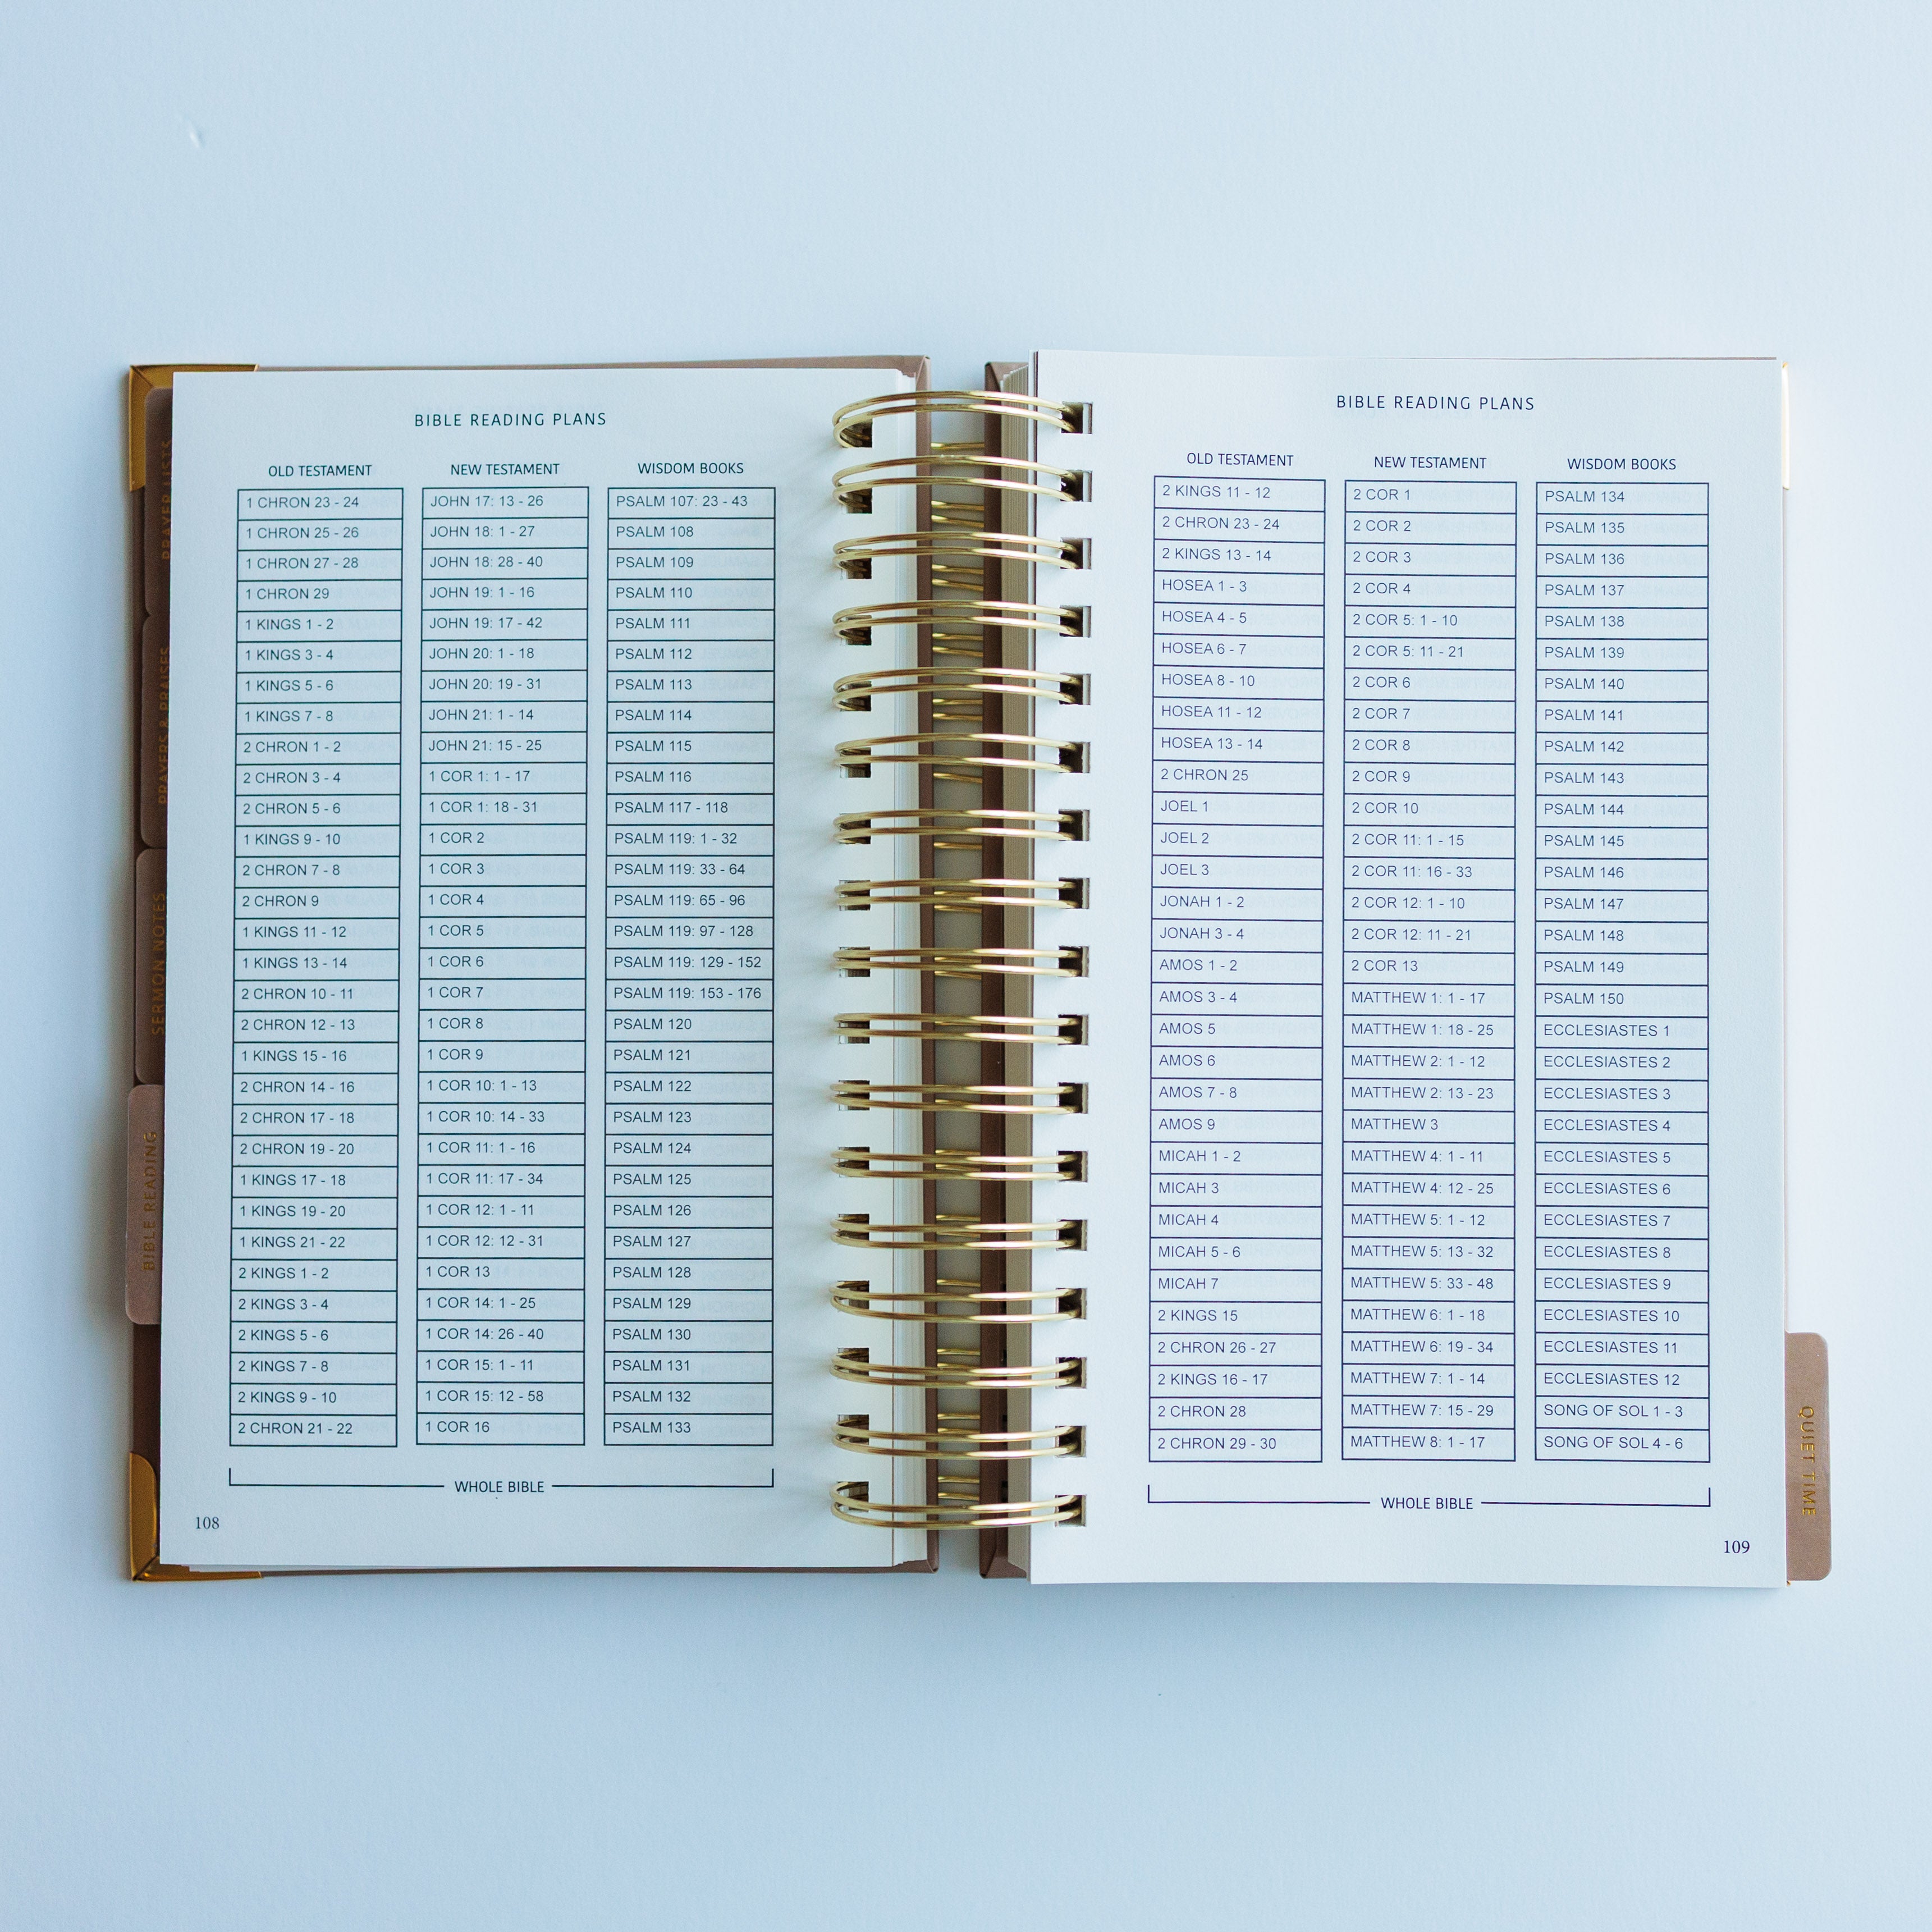 BIBLE READING PLANS
OLD TESTAMENT NEW TESTAMENT WISDOM BOOKS
1 CHRON 23 - 24 JOHN 17: 13 - 26 PSALM 107: 23 - 43
1 CHRON 25 - 26 JOHN 18: 1 - 27 PSALM 108
1 CHRON 27 - 28 JOHN 18: 28 - 40 PSALM 109
1 CHRON 29 JOHN 19: 1 - 16 PSALM 110
1 KINGS 1 - 2 JOHN 19: 17 - 42 PSALM 111
1 KINGS 3 - 4 JOHN 20: 1 - 18 PSALM 112
1 KINGS 5 - 6 JOHN 20: 19 - 31 PSALM 113
1 KINGS 7 - 8 JOHN 21: 1 - 14 PSALM 114
2 CHRON 1 - 2 JOHN 21: 15 - 25 PSALM 115
2 CHRON 3 - 4 1 COR 1: 1 - 17 PSALM 116
2 CHRON 5 - 6 1 COR 1: 18 - 31 PSALM 117 - 118
1 KINGS 9 - 10 1 COR 2 PSALM 119: 1 - 32
2 CHRON 7 - 8 1 COR 3 PSALM 119: 33 - 64
2 CHRON 9 1 COR 4 PSALM 119: 65 - 96
1 KINGS 11 - 12 1 COR 5 PSALM 119: 97 - 128
1 KINGS 13 - 14 1 COR 6 PSALM 119: 129 - 152
2 CHRON 10 - 11 1 COR 7 PSALM 119: 153 - 176
2 CHRON 12 - 13 1 COR 8 PSALM 120
1 KINGS 15 - 16 1 COR 9 PSALM 121
2 CHRON 14 - 16 1 COR 10: 1 - 13 PSALM 122
2 CHRON 17 - 18 1 COR 10: 14 - 33 PSALM 123
2 CHRON 19 - 20 1 COR 11: 1 - 16 PSALM 124
1 KINGS 17 - 18 1 COR 11: 17 - 34 PSALM 125
1 KINGS 19 - 20 1 COR 12: 1 - 11 PSALM 126
1 KINGS 21 - 22 1 COR 12: 12 - 31 PSALM 127
2 KINGS 1 - 2 1 COR 13 PSALM 128
2 KINGS 3 - 4 1 COR 14: 1 - 25 PSALM 129
2 KINGS 5 - 6 1 COR 14: 26 - 40 PSALM 130
2 KINGS 7 - 8 1 COR 15: 1 - 11 PSALM 131
2 KINGS 9 - 10 1 COR 15: 12 - 58 PSALM 132
2 CHRON 21 - 22 1 COR 16 PSALM 133
WHOLE BIBLE
108
PRAYER LISTS
PRAYERS & PRAISES
SERMON NOTES
BIBLE READING
BIBLE READING PLANS
OLD TESTAMENT NEW TESTAMENT WISDOM BOOKS
2 KINGS 11 - 12 2 COR 1 PSALM 134
2 CHRON 23 - 24 2 COR 2 PSALM 135
2 KINGS 13 - 14 2 COR 3 PSALM 136
HOSEA 1 - 3 2 COR 4 PSALM 137
HOSEA 4 - 5 2 COR 5: 1 - 10 PSALM 138
HOSEA 6 - 7 2 COR 5: 11 - 21 PSALM 139
HOSEA 8 - 10 2 COR 6 PSALM 140
HOSEA 11 - 12 2 COR 7 PSALM 141
HOSEA 13 - 14 2 COR 8 PSALM 142
2 CHRON 25 2 COR 9 PSALM 143
JOEL 1 2 COR 10 PSALM 144
JOEL 2 2 COR 11: 1 - 15 PSALM 145
JOEL 3 2 COR 11: 16 - 33 PSALM 146
JONAH 1 - 2 2 COR 12: 1 - 10 PSALM 147
JONAH 3 - 4 2 COR 12: 11 - 21 PSALM 148
AMOS 1 - 2 2 COR 13 PSALM 149
AMOS 3 - 4 MATTHEW 1: 1 - 17 PSALM 150
AMOS 5 MATTHEW 1: 18 - 25 ECCLESIASTES 1
AMOS 6 MATTHEW 2: 1 - 12 ECCLESIASTES 2
AMOS 7 - 8 MATTHEW 2: 13 - 23 ECCLESIASTES 3
AMOS 9 MATTHEW 3 ECCLESIASTES 4
MICAH 1 - 2 MATTHEW 4: 1 - 11 ECCLESIASTES 5
MICAH 3 MATTHEW 4: 12 - 25 ECCLESIASTES 6
MICAH 4 MATTHEW 5: 1 - 12 ECCLESIASTES 7
MICAH 5 - 6 MATTHEW 5: 13 - 32 ECCLESIASTES 8
MICAH 7 MATTHEW 5: 33 - 48 ECCLESIASTES 9
2 KINGS 15 MATTHEW 6: 1 - 18 ECCLESIASTES 10
2 CHRON 26 - 27 MATTHEW 6: 19 - 34 ECCLESIASTES 11
2 KINGS 16 - 17 MATTHEW 7: 1 - 14 ECCLESIASTES 12
2 CHRON 28 MATTHEW 7: 15 - 29 SONG OF SOL 1 - 3
2 CHRON 29 - 30 MATTHEW 8: 1 - 17 SONG OF SOL 4 - 6
WHOLE BIBLE
109
QUIET TIME